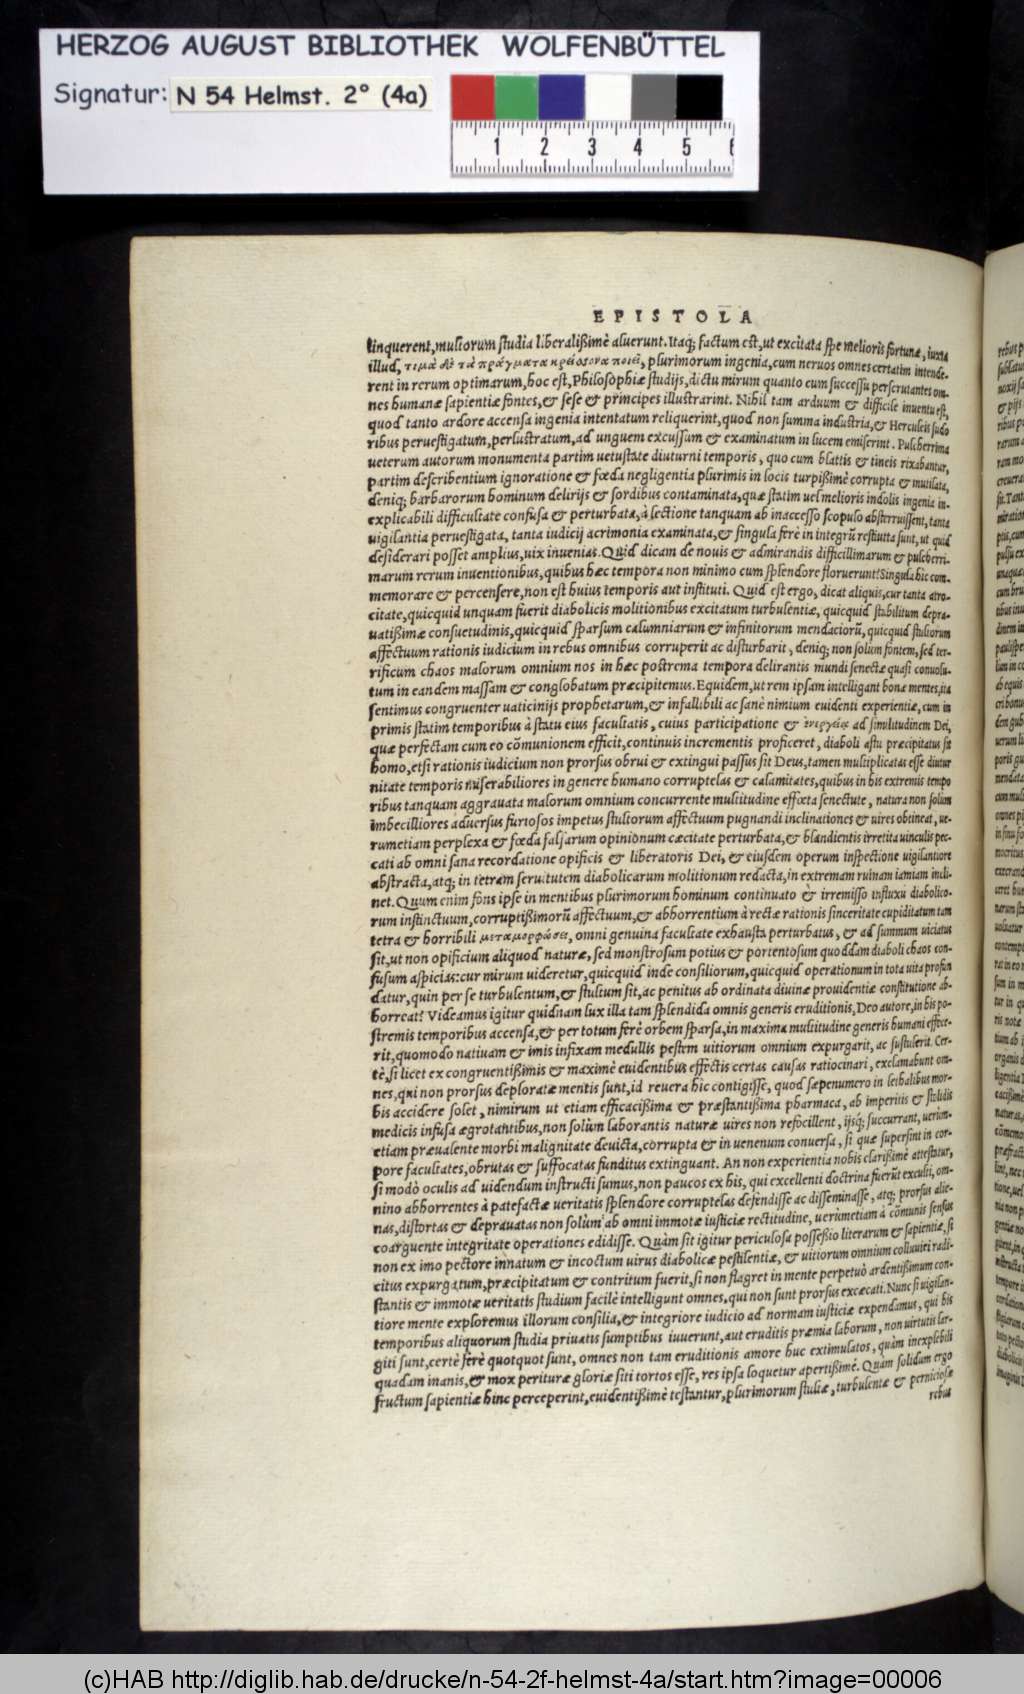 HERZOG AUGUST BIBLIOTHEK WOLFENBÜTTEL
Signatur: N 54 Helmst. 2° (4a)
1 2 3 4 5 6
EPISTOLA
linquerent, multorum studia liberalißimè aluerunt. Itaq; factum est, ut excitata spe melioris fortunæ, iuxta
illud, τιμὰ δὲ τὰ πράγματα κρείσσονα ποιεῖ, plurimorum ingenia, cum neruos omnes certatim intende-
rent in rerum optimarum, hoc est, Philosophiæ studijs, dictu mirum quanto cum successu perscrutantes om-
nes humanæ sapientiæ fontes, & sese & principes illustrarint. Nihil tam arduum & difficile inuentu est,
quod tanto ardore accensa ingenia intentatum reliquerint, quod non summa industria, & Herculeis sudo
ribus peruestigatum, perlustratum, ad unguem excussum & examinatum in lucem emiserint. Pulcherrima
ueterum autorum monumenta partim uetustate diuturni temporis, quo cum blattis & tineis rixabantur,
partim describentium ignoratione & fœda negligentia plurimis in locis turpißimè corrupta & mutilata,
deniq; barbarorum hominum delirijs & sordibus contaminata, quæ statim uel melioris indolis ingenia in-
explicabili difficultate confusa & perturbata, à lectione tanquam ab inaccesso scopulo absterruissent, tanta
uigilantia peruestigata, tanta iudicij acrimonia examinata, & singula ferè in integrũ restituta sunt, ut quid
desiderari posset amplius, uix inuenias. Quid dicam de nouis & admirandis difficillimarum & pulcherri-
marum rerum inuentionibus, quibus hæc tempora non minimo cum splendore floruerunt? Singula hic com-
memorare & percensere, non est huius temporis aut instituti. Quid est ergo, dicat aliquis, cur tanta atro-
citate, quicquid unquam fuerit diabolicis molitionibus excitatum turbulentiæ, quicquid stabilitum depra-
uatißimæ consuetudinis, quicquid sparsum calumniarum & infinitorum mendaciorũ, quicquid stultorum
affectuum rationis iudicium in rebus omnibus corruperit ac disturbarit, deniq; non solum fontem, sed ter-
rificum chaos malorum omnium nos in hæc postrema tempora delirantis mundi senectæ quasi conuolu-
tum in eandem massam & conglobatum præcipitemus. Equidem, ut rem ipsam intelligant bonæ mentes, ita
sentimus congruenter uaticinijs prophetarum, & infallibili ac sanè nimium euidenti experientiæ, cum in
primis statim temporibus à statu eius facultatis, cuius participatione & ἐνεργείᾳ ad similitudinem Dei,
quæ perfectam cum eo cõmunionem efficit, continuis incrementis proficeret, diaboli astu præcipitatus sit
homo, etsi rationis iudicium non prorsus obrui & extingui passus sit Deus, tamen multiplicatas esse diutur
nitate temporis miserabiliores in genere humano corruptelas & calamitates, quibus in his extremis tempo
ribus tanquam aggrauata malorum omnium concurrente multitudine effœta senectute, natura non solum
imbecilliores aduersus furiosos impetus stultorum affectuum pugnandi inclinationes & uires obtineat, ue-
rumetiam perplexa & fœda falsarum opinionum cæcitate perturbata, & blandientis irretita uinculis pec-
cati ab omni sana recordatione opificis & liberatoris Dei, & eiusdem operum inspectione uigilantiore
abstracta, atq; in tetram seruitutem diabolicarum molitionum redacta, in extremam ruinam iamiam incli-
net. Quum enim fons ipse in mentibus plurimorum hominum continuato & irremisso influxu diabolico-
rum instinctuum, corruptißimorũ affectuum, & abhorrentium à rectæ rationis sinceritate cupiditatum tam
tetra & horribili μεταμορφώσει, omni genuina facultate exhausta perturbatus, & ad summum uiciatus
sit, ut non opificium aliquod naturæ, sed monstrosum potius & portentosum quoddam diaboli chaos con-
fusum aspicias: cur mirum uideretur, quicquid inde consiliorum, quicquid operationum in tota uita profun
datur, quin per se turbulentum, & stultum sit, ac penitus ab ordinata diuinæ prouidentiæ constitutione ab-
horreat? Videamus igitur quidnam lux illa tam splendida omnis generis eruditionis, Deo autore, in his po-
stremis temporibus accensa, & per totum ferè orbem sparsa, in maxima multitudine generis humani effece-
rit, quomodo natiuam & imis infixam medullis pestem uitiorum omnium expurgarit, ac sustulerit. Cer-
tè, si licet ex congruentißimis & maximè euidentibus effectis certas causas ratiocinari, exclamabunt om-
nes, qui non prorsus deploratæ mentis sunt, id reuera hic contigisse, quod sæpenumero in lethalibus mor-
bis accidere solet, nimirum ut etiam efficacißima & præstantißima pharmaca, ab imperitis & stolidis
medicis infusa ægrotantibus, non solùm laborantis naturæ uires non refocillent, ijsq; succurrant, uerum-
etiam præualente morbi malignitate deuicta, corrupta & in uenenum conuersa, si quæ supersint in cor-
pore facultates, obrutas & suffocatas funditus extinguant. An non experientia nobis clarißimè attestatur,
si modò oculis ad uidendum instructi sumus, non paucos ex his, qui excellenti doctrina fuerũt exculti, om-
nino abhorrentes à patefactæ ueritatis splendore corruptelas defendisse ac disseminasse, atq; prorsus alie-
nas, distortas & deprauatas non solùm ab omni immotæ iusticiæ rectitudine, uerùmetiam à cõmunis sensus
coarguente integritate operationes edidisse. Quàm sit igitur periculosa possessio literarum & sapientiæ, si
non ex imo pectore innatum & incoctum uirus diabolicæ pestilentiæ, & uitiorum omnium colluuiei radi-
citus expurgatum, præcipitatum & contritum fuerit, si non flagret in mente perpetuò ardentißimum con-
stantis & immotæ ueritatis studium facilè intelligunt omnes, qui non sunt prorsus excæcati. Nunc si uigilan-
tiore mente exploremus illorum consilia, & integriore iudicio ad normam iusticiæ expendamus, qui his
temporibus aliquorum studia priuatis sumptibus iuuerunt, aut eruditis præmia laborum, non uirtutis lar-
giti sunt, certè ferè quotquot sunt, omnes non tam eruditionis amore huc extimulatos, quàm inexplebili
quadam inanis, & mox perituræ gloriæ siti tortos esse, res ipsa loquetur apertißimè. Quàm solidum ergo
fructum sapientiæ hinc perceperint, euidentißimè testantur, plurimorum stultæ, turbulentæ & perniciosæ
rebus
(c)HAB http://diglib.hab.de/drucke/n-54-2f-helmst-4a/start.htm?image=00006